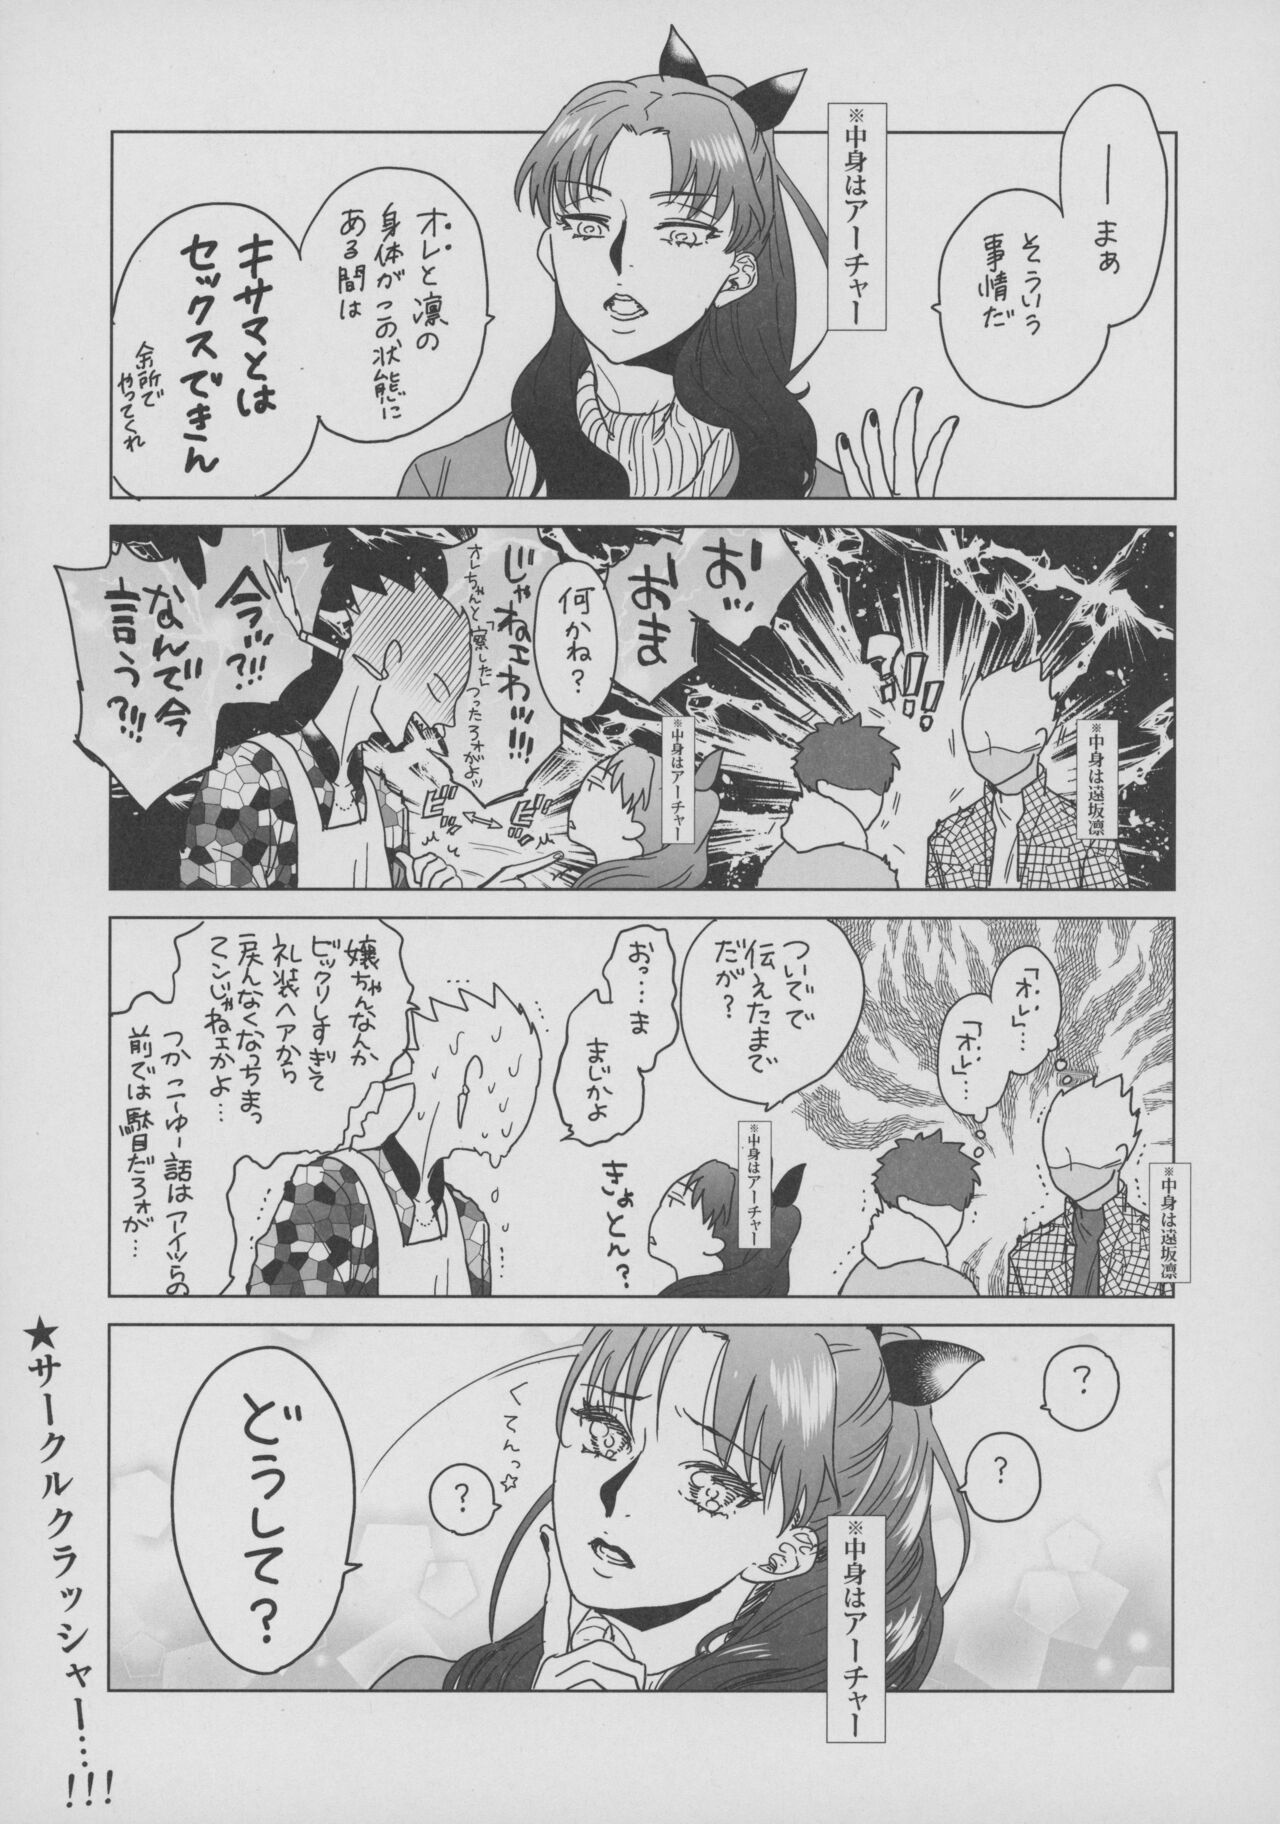 ―まぁ
そういう
事情だ
※中身はアーチャー
オレと凛の
身体がこの状態に
ある間は
キサマとは
セックスできん
余所で
やってくれ
!!!
※中身は遠坂凛
おッ
おま
※中身はアーチャー
何かね?
じゃねェわッ!!!
オレちゃんと「察した」つったろォがよッ
ビッ
ビッ
今ッ!?!!
なんで今
言う?!!!
「オレ」…
「オレ」…
※中身は遠坂凛
ついでで
伝えたまで
だが?
※中身はアーチャー
おっ…ま
まじかよ
きょとん?
嬢ちゃんなんか
ビックリしすぎて
礼装ヘアから
戻んなくなっちまっ
てンじゃねェかよ…
つか こーゆー話はアイツらの
前では駄目だろォが…
?
?
※中身はアーチャー
くてんっ☆
?
どうして?
★サークルクラッシャー…!!!